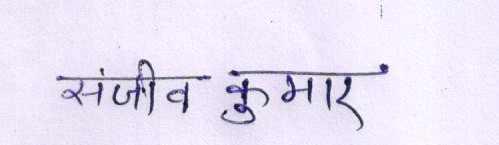 संजीव कुमार